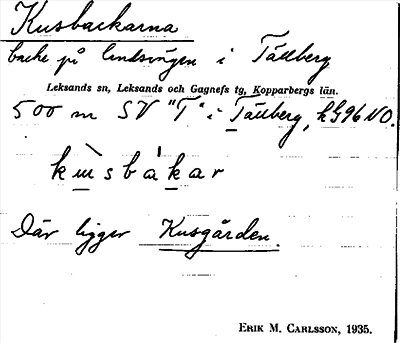 Kusbackarna
backe på landsvägen i Tällberg
Leksands sn, Leksands och Gagnefs tg, Kopparbergs län.
500 m SV "T" i Tällberg, kG96 NO.
kusbakar
Där ligger Kusgården.
ERIK M. CARLSSON, 1935.